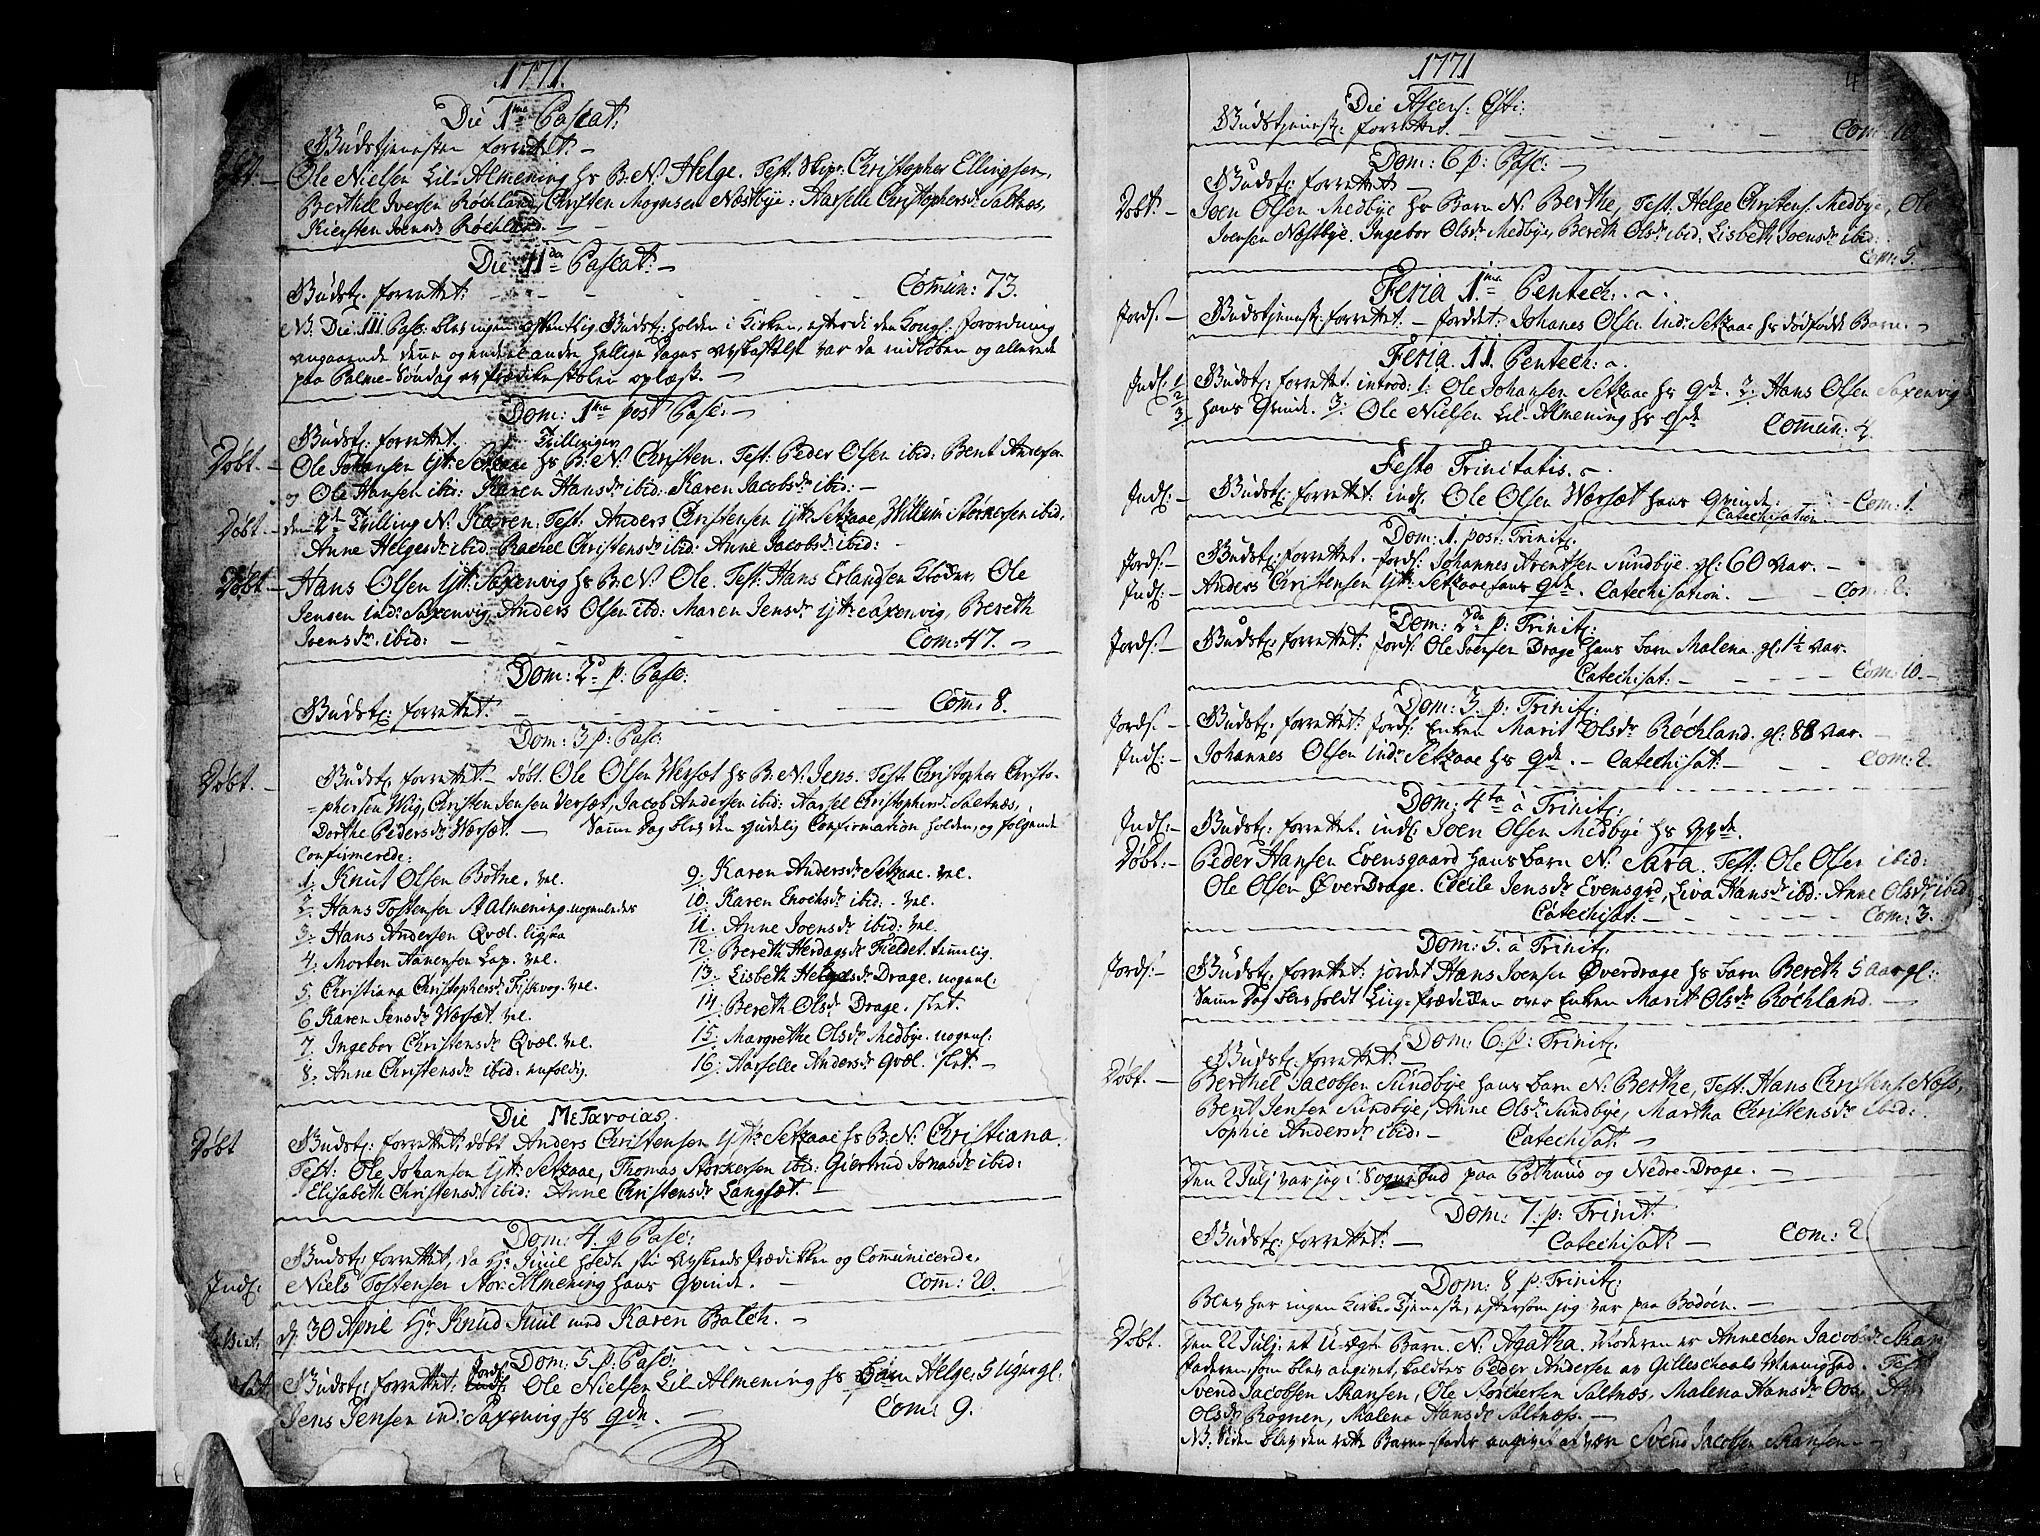 1771.
Die 1ma Pascat:
Gudstjenesten forrettet. –
Døbt. – Ole Nielsen Lil-Almening hs B: N. Helge. Test. Skipr. Christopher Ellingsen,
Berthel Iversen Røchland, Christen Mognsen Næstbye: Marselle Christophersdr Saltnæs,
Kiersten Joensdr Røchland. –
Die 11da Pascat: –
Gudstj: forrettet: – – – – – Comun: 73.
NB. Die III Pasc: blev ingen offentlig Gudstj: holden i Kirken, efterdi den Kongl: forordning
angaaende denne og endeel andre hellige Dages Afskaffelse var da indløben og allerede
paa Palme-Søndag af Prædikestolen oplæst. –
Dom: 1ma post Pasc: –
Gudstj: forrettet. Tvillinger
Døbt. – Ole Johansen Ytt: Setzaae hs B: N: Christen. Test. Peder Olsen ibid: Bent Andersen
og Ole Hansen ibid: Karen Hansdr ibid: Karen Jacobsdr ibid: –
Døbt – den 2de Tvilling N: Karen: Test: Anders Christensen Ytt: Setzaae, Willum Størkersen ibid,
Anne Helgesdr ibid. Rachel Christensdr ibid: Anne Jacobsdr ibid: –
Døbt – Hans Olsen Ytt: Saxenvig hs B: N: Ole. Test: Hans Erlandsen Bloder, Ole
Jensen Indr Saxenvig, Anders Olsen ibd: Maren Jensdr Ytt: Saxenvig, Bereth
Joensdr ibid: – – – Com: 47. –
Dom: 2da p: Pasc:
Gudstj: forrettet. – – – – Com: 8.
Dom: 3 p: Pasc:
Døbt. – Gudstj: forrettet – døbt. Ole Olsen Wersæt hs B: N: Jens. Test: Christopher Christo-
phersen Wiig, Christen Jensen Versæt, Jacob Andersen ibid: Marsel Christophersdr Saltnæs,
Dorthe Pedersdr Wersæt. – Samme Dag blev den gudelig Confirmation holden, og følgende
Confirmerede:
1. Knut Olsen Botne. vel.
2. Hans Tostensen Alalmening. nogenledes
3. Hans Andersen Qvæl. ligesaa
4. Morten Aanensen Lap. vel.
5. Christiana Christophersdr Fiskvog. vel.
6 Karen Jensdr Wersæt. vel.
7. Ingebor Christensdr Qvæl. vel.
8. Anne Christensdr ibid: enfoldig.
9. Karen Andersdr Setzaae. vel.
10. Karen Enochsdr ibid. – vel.
11. Anne Joensdr ibid: vel.
12. Bereth Herdagsdr Fieldet. temmelig.
13. Lisbeth Helgesdr Drage. nogenl.
14. Bereth Olsdr Drage. slet.
15. Margrethe Olsdr Medbye. nogenl:
16. Marselle Andersdr Qvæl. slet. –
Die Μετανοίας.
Døbt Gudstj: forrettet: døbt Anders Christensen Ytt: Setzaae hs B: N: Christiana.
Test: Ole Johansen Ytt: Setzaae, Thomas Størkersen ibid: Giertrud Jonasdr ibid:
Elisabeth Christensdr ibid: Anne Christensdr Langsæt. –
Dom: 4. p Pasc:
Gudstj: forrettet, da Hr. Juul holdt sin Afskeeds Prædikken og Communicerede.
Indl. Niels Tostensen Stor: Almening hans Qvinde. – Com: 20.
d. 30 April Hr Knud Juul med Karen Balch. –
Dom: 5. p: Pasc:
Gudstj: forrettet: Jords. Ole Nielsen Lil-Almening hs Barn Helge, 5 Uger gl.
Jens Jensen ind: Saxenvig hs qde. – Com: 9.
1771
Die Ascens: Xsti:
Gudstjenest: forrettet. – – – Com: 10
Dom: 6 p: Pasc: –
Gudstj: forrettet –
Døbt. – Joen Olsen Medbye hs Barn N: Berthe, Test: Helge Christens. Medbye, Ole
Joensen Næstbye. Ingebor Olsdr Medbye, Bereth Olsdr ibid: Lisbeth Joensdr ibid:
Com: 5.
Feria 1ma Pentech: –
Jords: – Gudstjenest: forrettet. – jordet: Johanes Olsen Indr Setzaae hs dødfødde Barn. –
Feria 11. Pentech: –
Indl. 1 Gudstj: forrettet. introd: 1: Ole Johansen Setzaae hs Qde. 2: Hans Olsen Saxenvig
2 3 hans Qvinde. 3: Ole Nielsen Lil-Almening hs Qde Comun: 4.
Festo Trinitatis. –
Indl: – Gudstj: forrettet: indl. Ole Olsen Wersæt hans Qvinde: – – Com: 1.
Catechisation
Dom: 1. post: Trinit:
Jords: – Gudstj: forrettet. Jords: Johannes Arentsen Sundbye. gl: 60 Aar. –
Indl: – Anders Christensen Ytt: Setzaae hans Qde. Catechisation. – – Com: 2.
Dom: 2da p: Trinit:
Jords: – Gudstj: forrettet: Jords: Ole Joensen Drage hans Barn Malena. gl: 1½ Aar.
Catechisat: – – – Com: 10. –
Dom: 3. p: Trinit:
Jords. – Gudstj: forrettet: Jords: Enken Marit Olsdr Røchland. gl: 88 Aar. –
Indl: – Johannes Olsen Indr Setzaae hs Qde. – Catechisat: – – – Com: 2.
Dom: 4ta à Trinit:
Indl: – Gudstj: forrettet. indl. Joen Olsen Medbye hs Qvde.
Døbt: – Peder Hansen Evensgaard hans Barn N: Sara. Test: Ole Olsen ibid:
Ole Olsen ØverDrage. Cecile Jensdr Evensgrd, Liva Hansdr ibd: Anne Olsdr ibid:
Catechisat: – – – Com: 3.
Dom: 5. à Trinit:
Jords: – Gudstj: forrettet: jordet Hans Joensen Øverdrage hs Barn Bereth 5 Aar gl:
Samme Dag blev holdt Liig-Prædicken over Enken Marit Olsdr Røchland. –
Dom: 6: p: Trinit:
Gudstj: forrettet: –
Døbt. – Berthel Jacobsen Sundbye hans Barn N: Berthe, Test: Hans Christens. Næss,
Bent Jensen Sundbye, Anne Olsdr Sundbye, Martha Christensdr ibid:
Sophie Andersdr ibid: – Catechisat: –
Den 2 Julj var jeg i Sognebud paa Pothuus og Nedre-Drage. –
Dom: 7: p: Trinit:
Gudstj: forrettet: – Catechisat: – Com: 2.
Dom: 8 p: Trinit:
Blev her ingen Kirke Tjeneste, eftersom jeg var paa Bodøen. –
Døbt. Den 22 Julj: et U-ægte Barn. N: Agatha. Moderen er Annechen Jacobsdr Skans
faderen, som blev angivet, kaldtes Peder Andersen av Gilleschaals Meenighed. Test
Svend Jacobsen Skansen, Ole Størchersen Saltnæs. Malena Hansdr Oos,
Olsdr Rognen, Malena Hansdr Saltnæss. –
NB: Siden blev den rette Barne-fader angivet at være Svend Jacobsen Skansen –